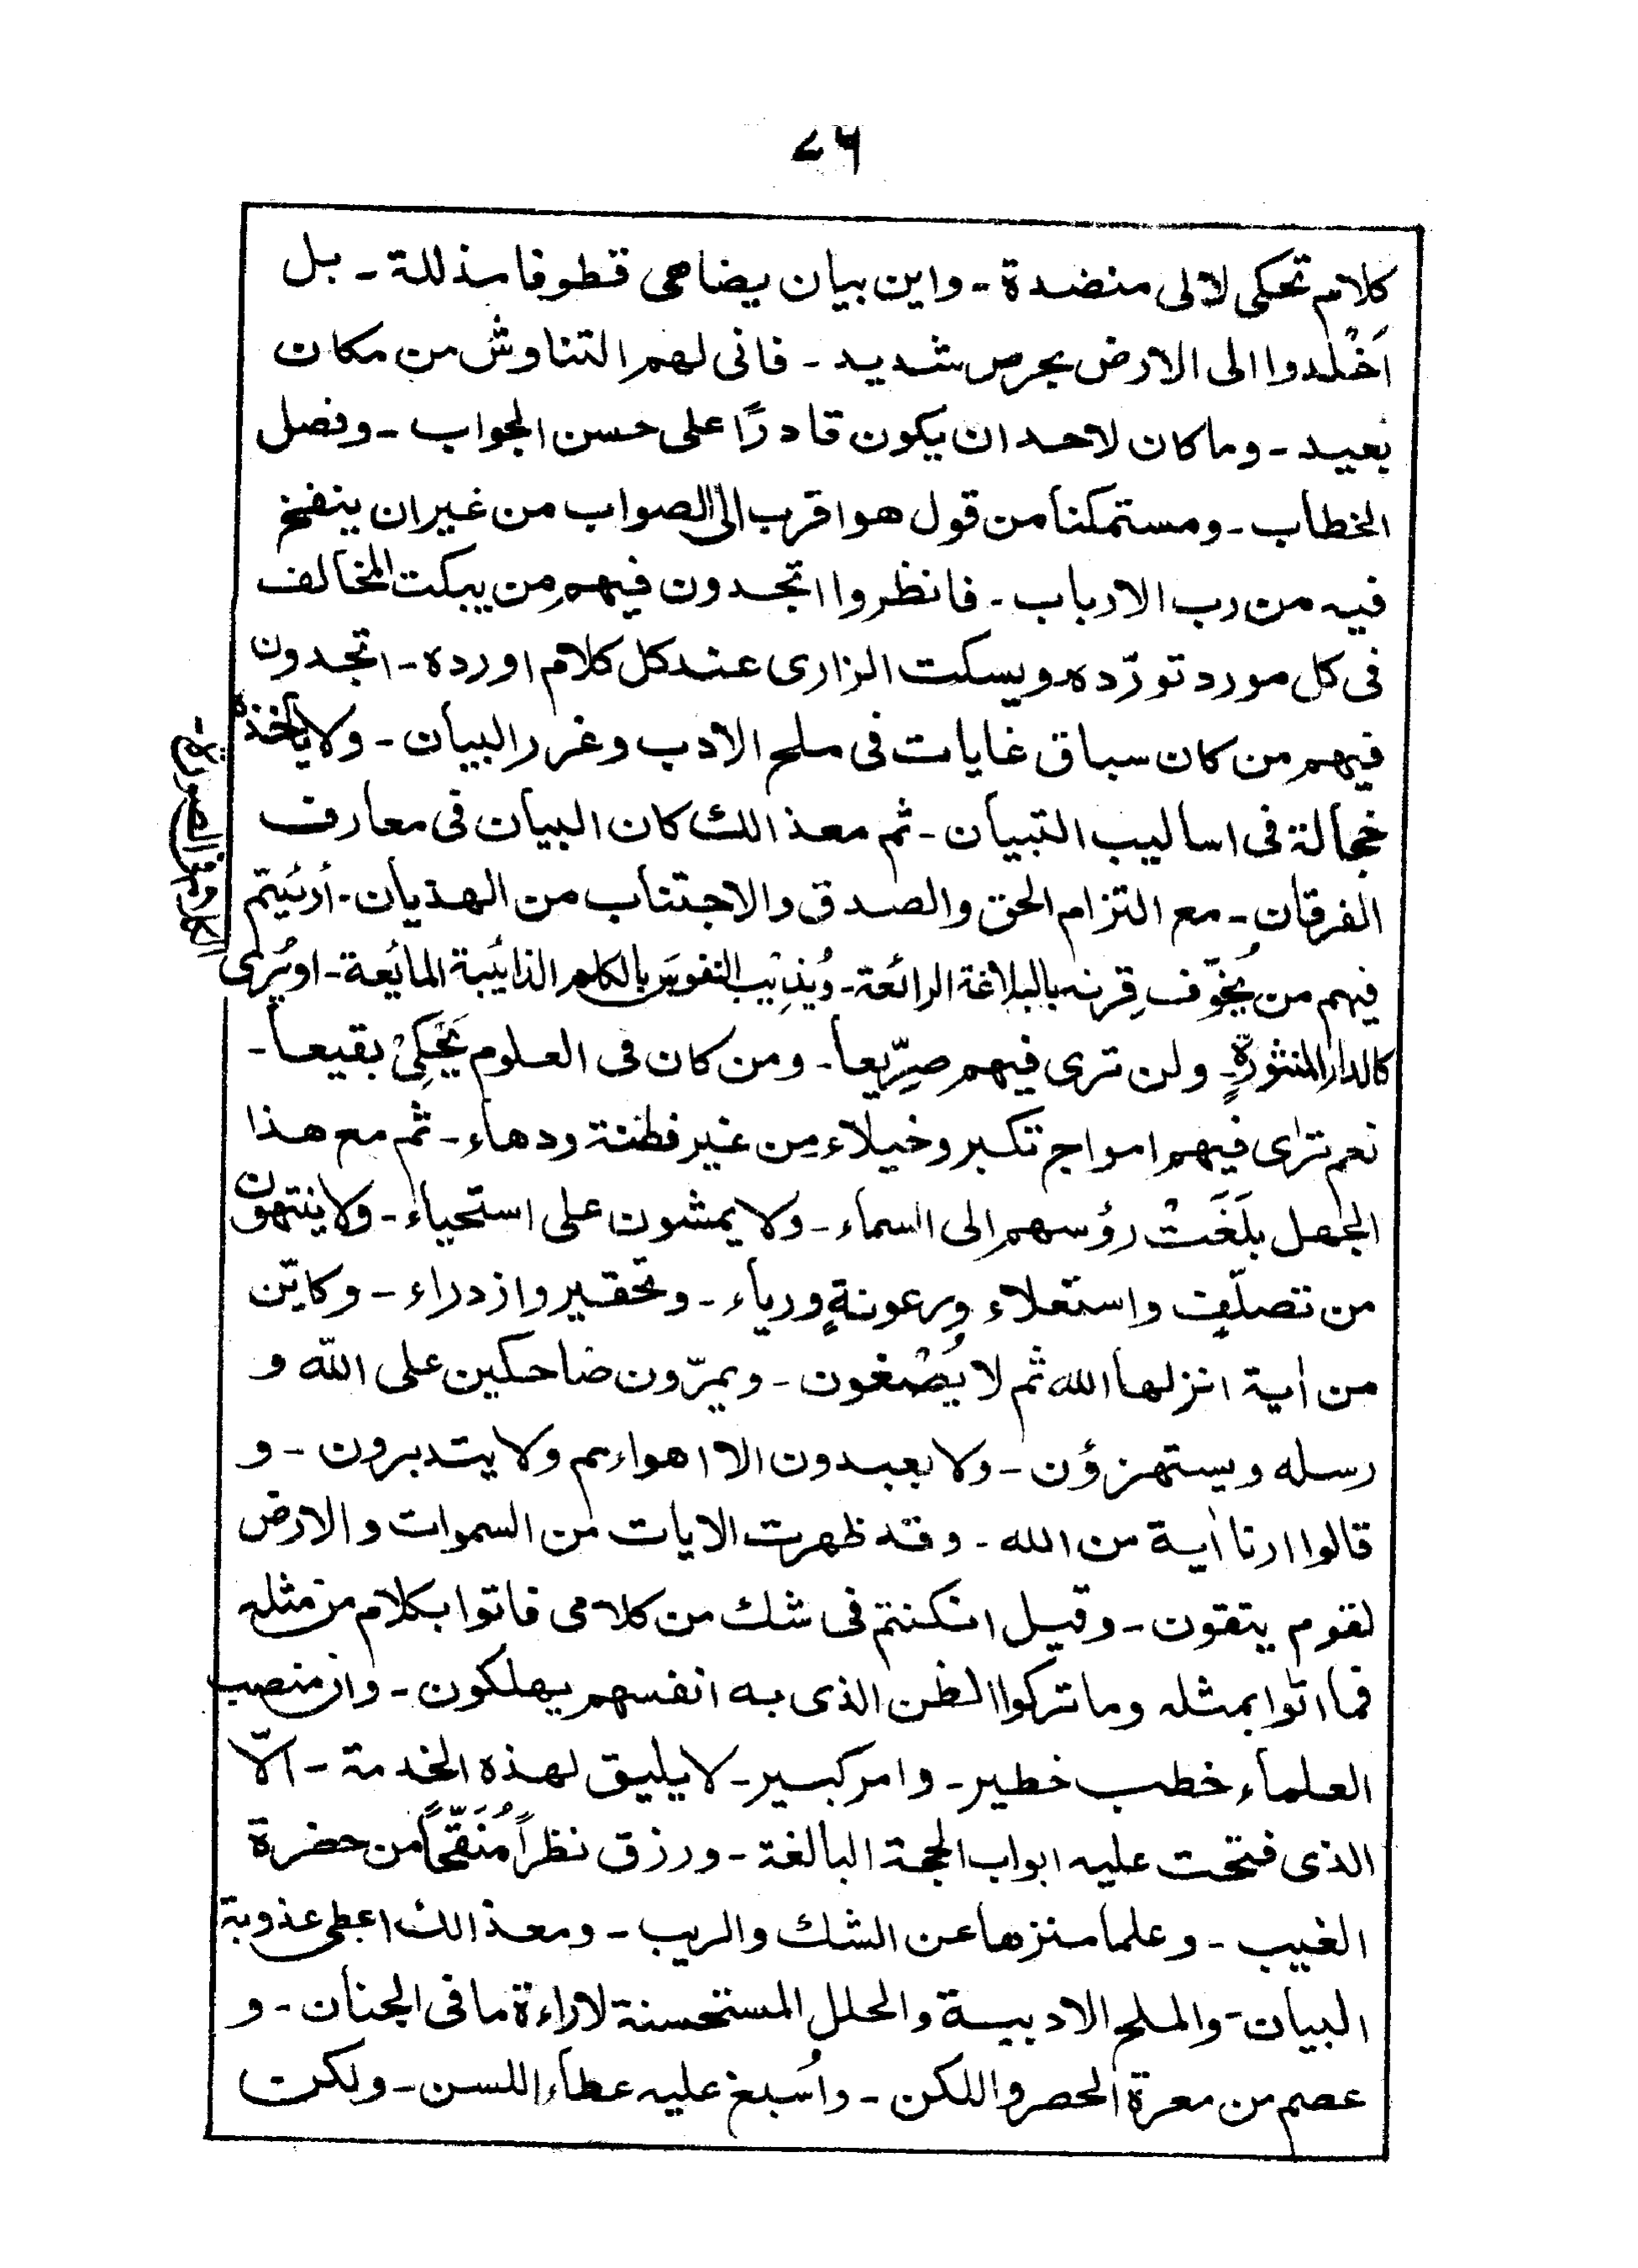 ٧٦
كلام تحكى لالى منضدة - واين بيان يضاهى قطوفا مذللة - بل
اَخْلدوا الى الارض بحرص شديد - فانى لهم التناوش من مكان
بعيد - وما كان لاحد ان يكون قادرًا على حسن الجواب - وفصل
الخطاب - ومستمكنا من قول هو اقرب الى الصواب من غير ان ينفخ
فيه من رب الارباب - فانظروا اتجدون فيهم من يبكت المخالف
فى كل مورد تورّده ويسكت الزارى عند كل كلام اورده - اتجدون
فيهم من كان سباق غايات فى ملح الادب وغرر البيان - ولا يأخذه
خجالة فى اساليب التبيان - ثم معذالك كان البيان فى معارف
الفرقان - مع التزام الحق والصدق والاجتناب من الهذيان - أرئيتم
فيهم من يُخوّف قِرنه بالبلاغة الرائعة - ويُذيب النفوس بالكلم الذائبة المائعة - او يُرى
الكلام فى الصورة
كالدار المنثورةِ - ولن ترى فيهم صِرّيعا - ومن كان فى العلوم يَحْكِىْ بقيعا -
نعم ترٰى فيهم امواج تكبر وخيلاء مِن غير فطنة ودهاء - ثم مع هذا
الجهل بلَغَتْ رؤسهم الى السماء - ولا يمشون على استحياء - ولا ينتهون
من تصلّف واستعلاء ورعونةٍ ورياء - وتحقير وازدراء - وكايّن
من اٰية انزلها الله ثم لا يُصْغون - ويمرّون ضاحكين على اللّه و
رسله ويستهزؤن - ولا يعبدون الا اهواءهم ولا يتدبرون - و
قالوا ارنا اٰية من الله - وقد ظهرت الايات من السموات والارض
لقوم يتقون - وقيل انكنتم فى شك من كلامى فاتوا بكلام من مثله
فما اتوا بمثله وما تركوا الظن الذى به انفسهم يهلكون - وان منصب
العلماء خطب خطير - وامر كبير - لا يليق لهذه الخدمة - الّا
الذى فتحت عليه ابواب الحجة البالغة - ورزق نظراً مُنَقَّحاً من حضرة
الغيب - وعلما منزها عن الشك والريب - ومعذالك اعطى عذوبة
البيان - والملح الادبية والحلل المستحسنة لاراءة ما فى الجنان - و
عصم من معرة الحصر واللكن - واُسبغ عليه عطاء اللسن - ولكن